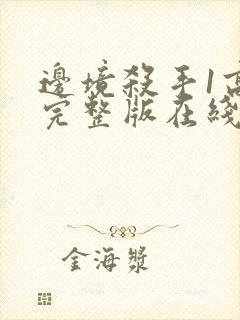 邊境殺手1高
完整版在綫
金海漿